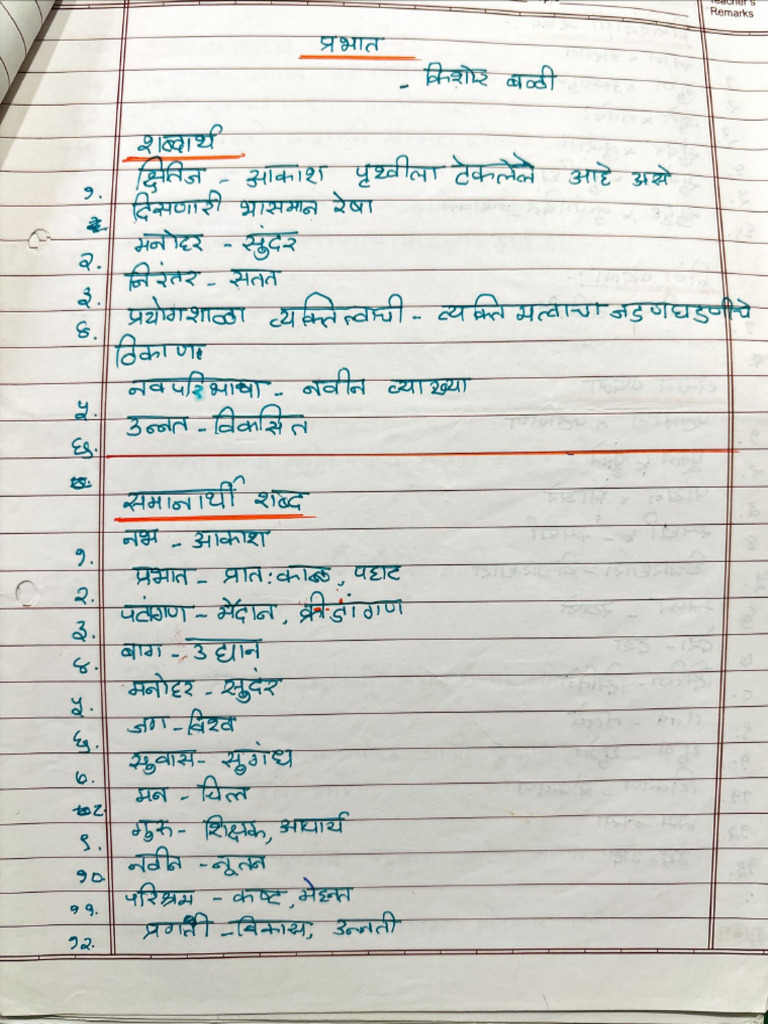 Teacher's
Remarks
प्रभात
- किशोर बळी
शब्दार्थ
१. क्षितिज - आकाश पृथ्वीला टेकलेले आहे असे
दिसणारी भासमान रेषा
२. मनोहर - सुंदर
३. निरंतर - सतत
४. प्रयोगशाळा व्यक्तित्वाची - व्यक्तिमत्वाचा जडणघडणीचे
ठिकाण.
५. नवपरिभाषा - नवीन व्याख्या
६. उन्नत - विकसित
समानार्थी शब्द
१. नभ - आकाश
२. प्रभात - प्रात:काळ, पहाट
३. पटांगण - मैदान, क्रीडांगण
४. बाग - उद्यान
५. मनोहर - सुंदर
६. जग - विश्व
७. सुवास - सुगंध
८. मन - चित्त
९. गुरु - शिक्षक, आचार्य
१०. नवीन - नूतन
११. परिश्रम - कष्ट, मेहनत
१२. प्रगती - विकास, उन्नती